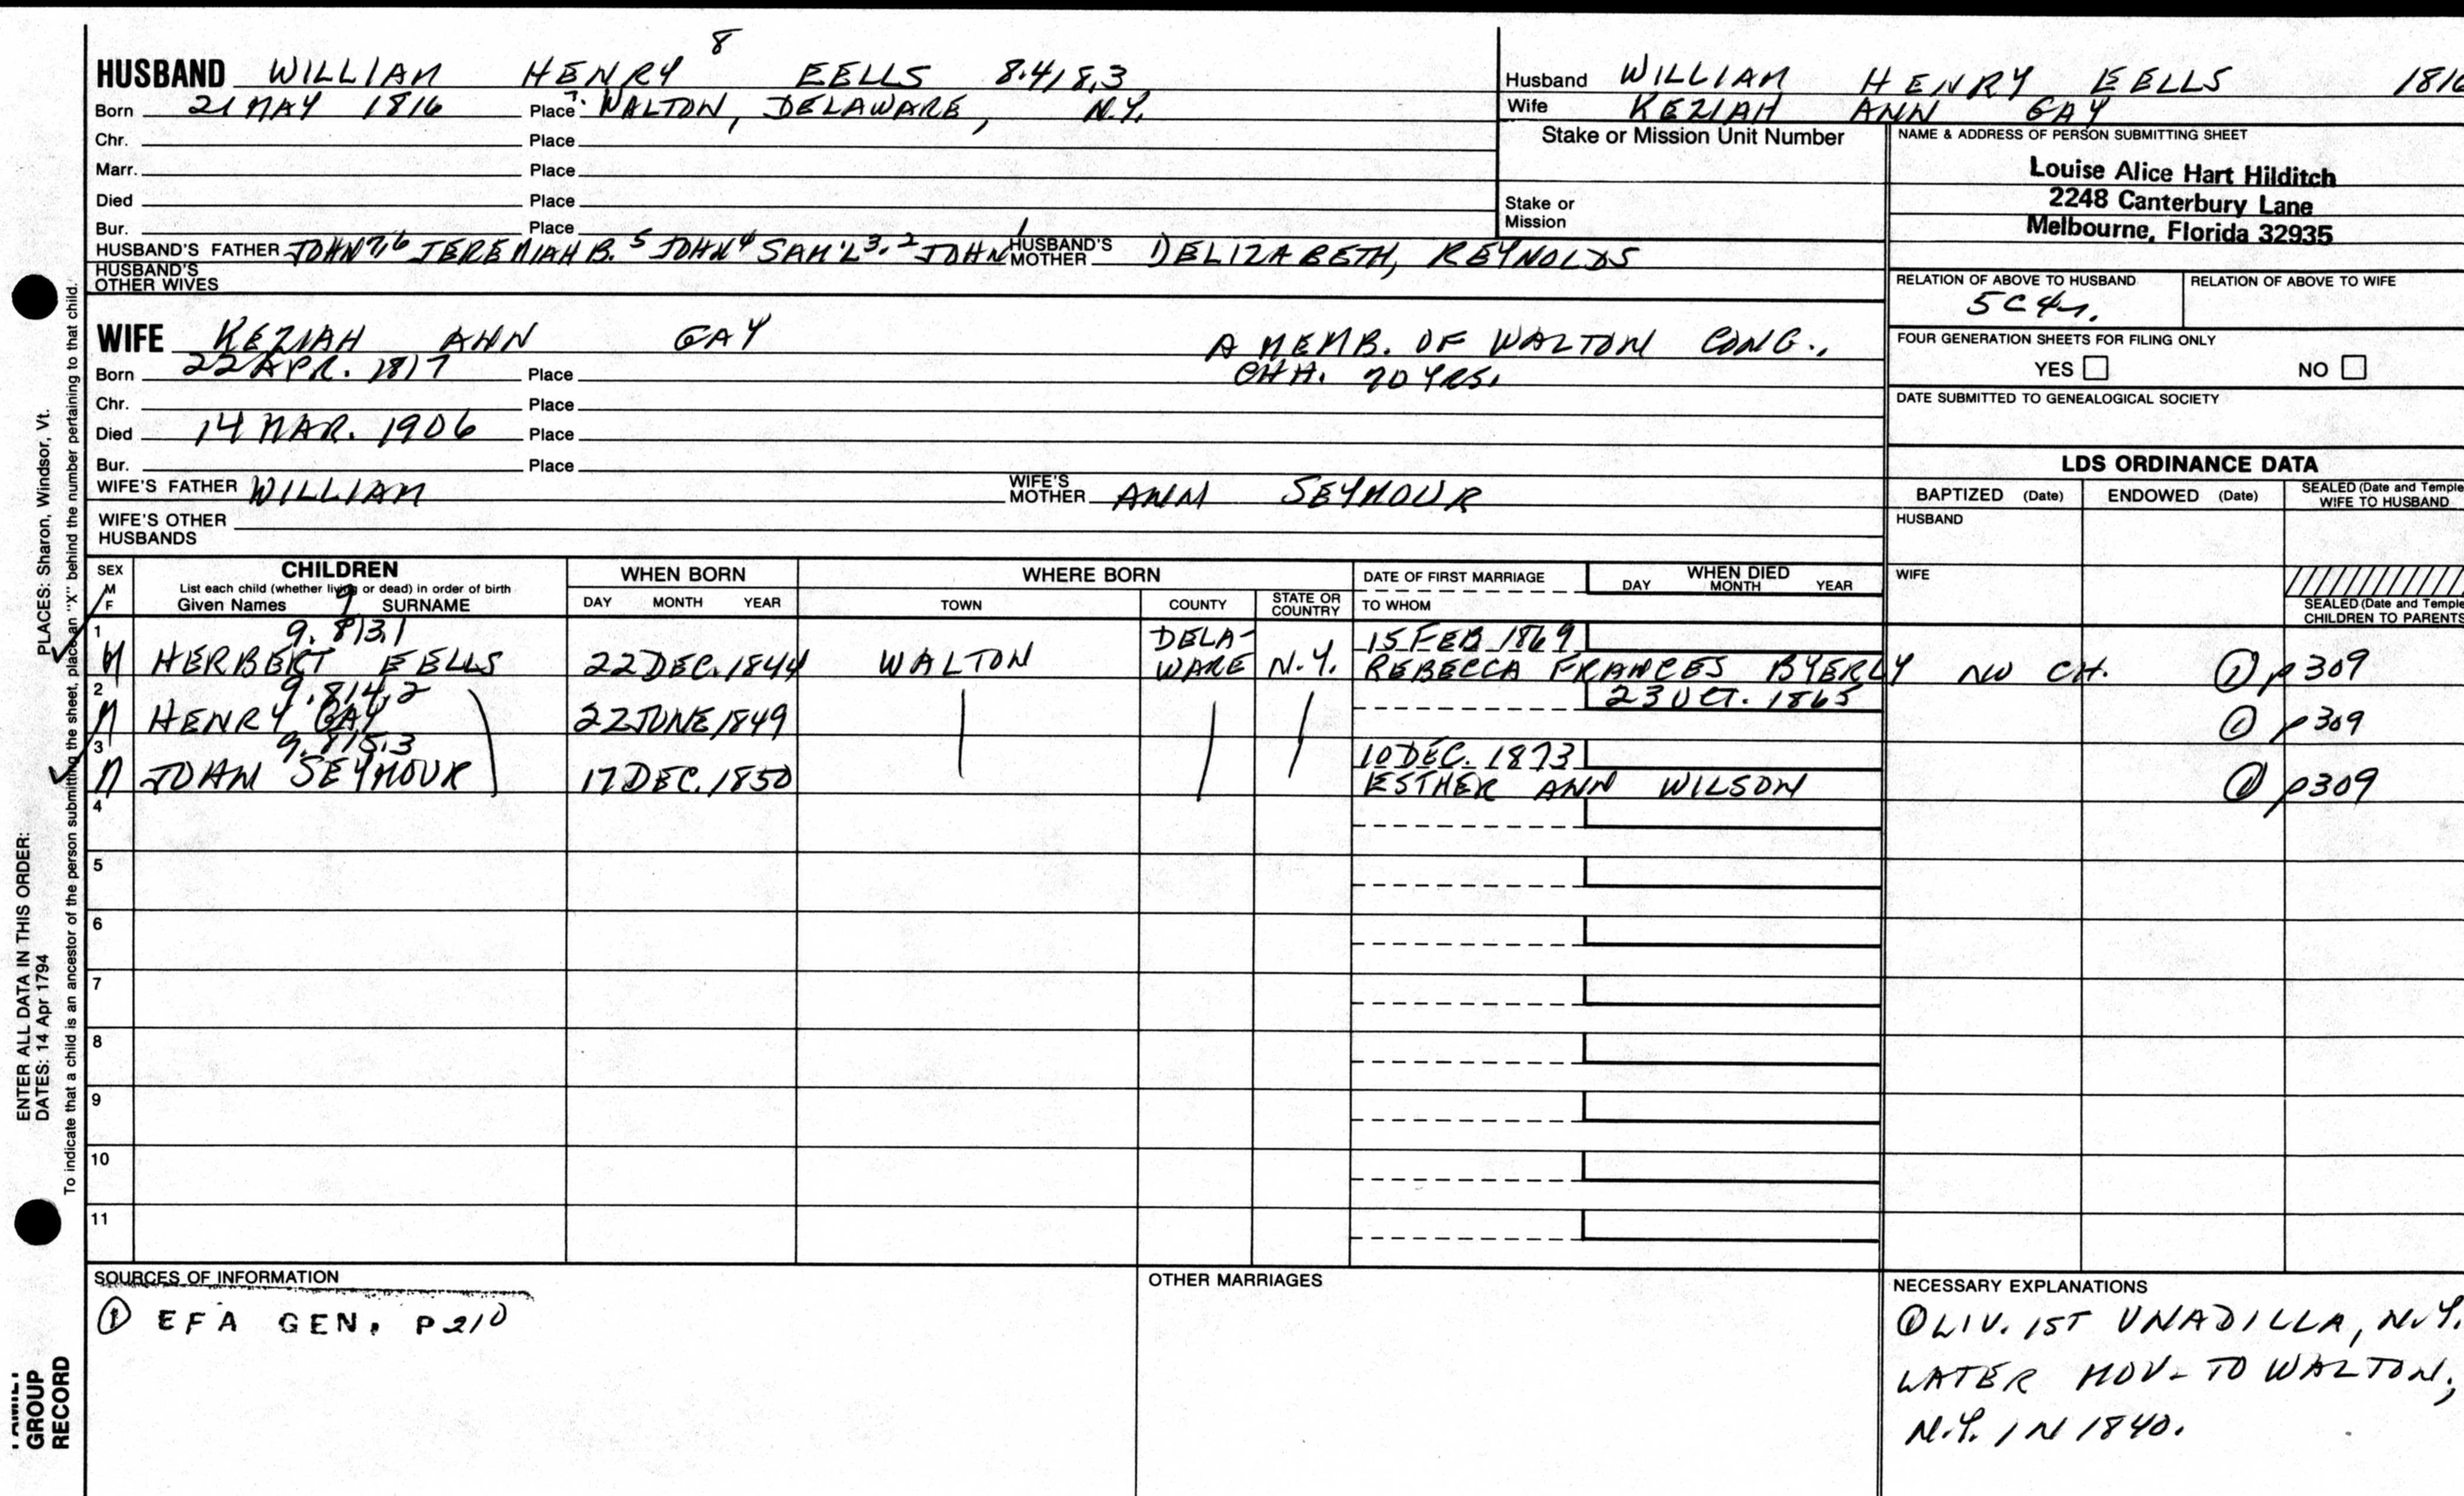 8
HUSBAND WILLIAM HENRY EELLS 8.418.3
Born 21 MAY 1816 Place ?. WALTON, DELAWARE, N.Y.
Chr. Place
Marr. Place
Died Place
Bur. Place
HUSBAND'S FATHER JOHN 7,6 JEREMIAH B. 5 JOHN 4 SAM'L 3,2 JOHN 1 HUSBAND'S MOTHER ELIZABETH, REYNOLDS
HUSBAND'S OTHER WIVES
WIFE KEZIAH ANN GAY A MEMB. OF WALTON CONG.,
Born 22 APR. 1817 Place CHH. 70 YRS.
Chr. Place
Died 14 MAR. 1906 Place
Bur. Place
WIFE'S FATHER WILLIAM WIFE'S MOTHER ANN SEYMOUR
WIFE'S OTHER HUSBANDS
Husband WILLIAM HENRY EELLS 1816
Wife KEZIAH ANN GAY
Stake or Mission Unit Number
Stake or Mission
NAME & ADDRESS OF PERSON SUBMITTING SHEET
Louise Alice Hart Hilditch
2248 Canterbury Lane
Melbourne, Florida 32935
RELATION OF ABOVE TO HUSBAND RELATION OF ABOVE TO WIFE
5C4r.
FOUR GENERATION SHEETS FOR FILING ONLY
YES NO
DATE SUBMITTED TO GENEALOGICAL SOCIETY
LDS ORDINANCE DATA
BAPTIZED (Date) ENDOWED (Date) SEALED (Date and Temple) WIFE TO HUSBAND
HUSBAND
WIFE
SEALED (Date and Temple) CHILDREN TO PARENTS
SEX M F
CHILDREN
List each child (whether living or dead) in order of birth
Given Names 9 SURNAME
WHEN BORN
DAY MONTH YEAR
WHERE BORN
TOWN COUNTY STATE OR COUNTRY
DATE OF FIRST MARRIAGE
TO WHOM
WHEN DIED
DAY MONTH YEAR
1 9.813.1 DELA- 15 FEB 1869
M HERBERT EELLS 22 DEC. 1844 WALTON WARE N.Y. REBECCA FRANCES BYERLY NO CH. ① p309
2 9.814.2 23 OCT. 1865
M HENRY GAY 22 JUNE 1849 ① p309
3 9.815.3 10 DEC. 1873
M JOHN SEYMOUR 17 DEC. 1850 ESTHER ANN WILSON ① p309
4
5
6
7
8
9
10
11
SOURCES OF INFORMATION
① EFA GEN. P210
OTHER MARRIAGES
NECESSARY EXPLANATIONS
① LIV. 1ST UNADILLA, N.Y.
LATER MOV- TO WALTON,
N.Y. IN 1840.
PLACES: Sharon, Windsor, Vt.
To indicate that a child is an ancestor of the person submitting the sheet, place an "X" behind the number pertaining to that child.
ENTER ALL DATA IN THIS ORDER:
DATES: 14 Apr 1794
FAMILY
GROUP
RECORD